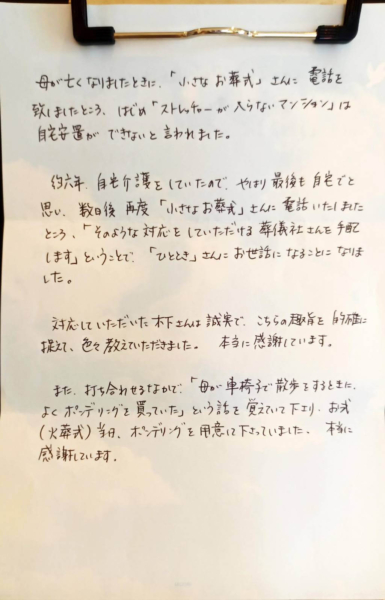 母が亡くなりましたときに、「小さなお葬式」さんに 電話を
致しましたところ、はじめ「ストレッチャーが入らないマンション」は
自宅安置ができないと言われました。
約六年、自宅介護をしていたので、やはり最後も自宅でと
思い、数日後 再度「小さなお葬式」さんに電話いたしました
ところ、「そのような対応をしていただける葬儀社さんを手配
します」ということで、「ひととき」さんにお世話になることになりま
した。
対応していただいた木下さんは誠実で、こちらの趣旨を的確に
捉えて、色々教えていただきました。 本当に感謝しています。
また、打ち合わせるなかで、「母が車椅子で散歩をするときに、
よくポンデリングを買っていた」という話を覚えていて下さり、お式
(火葬式)当日、ポンデリングを用意して下さっていました。 本当に
感謝しています。